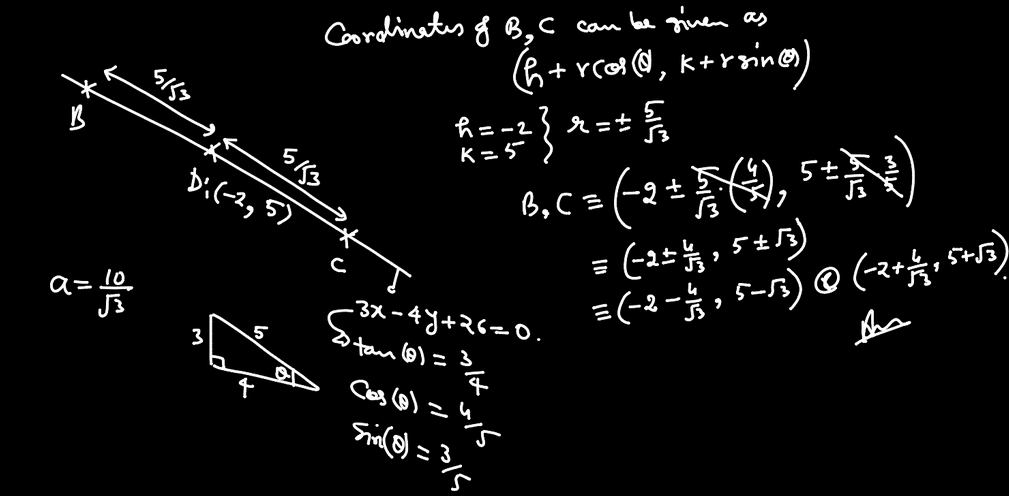 Coordinates of B, C can be given as
(h + r cos(θ), k + r sin(θ))
h = -2
k = 5
} r = ± 5/√3
B, C ≡ (-2 ± 5/√3 · (4/5), 5 ± 5/√3 · 3/5)
≡ (-2 ± 4/√3, 5 ± √3)
≡ (-2 - 4/√3, 5 - √3) & (-2 + 4/√3, 5 + √3).
Ans
5/√3
B
5/√3
D:(-2, 5)
C
a = 10/√3
3
5
4
θ
3x - 4y + 26 = 0.
tan(θ) = 3/4
Cos(θ) = 4/5
Sin(θ) = 3/5